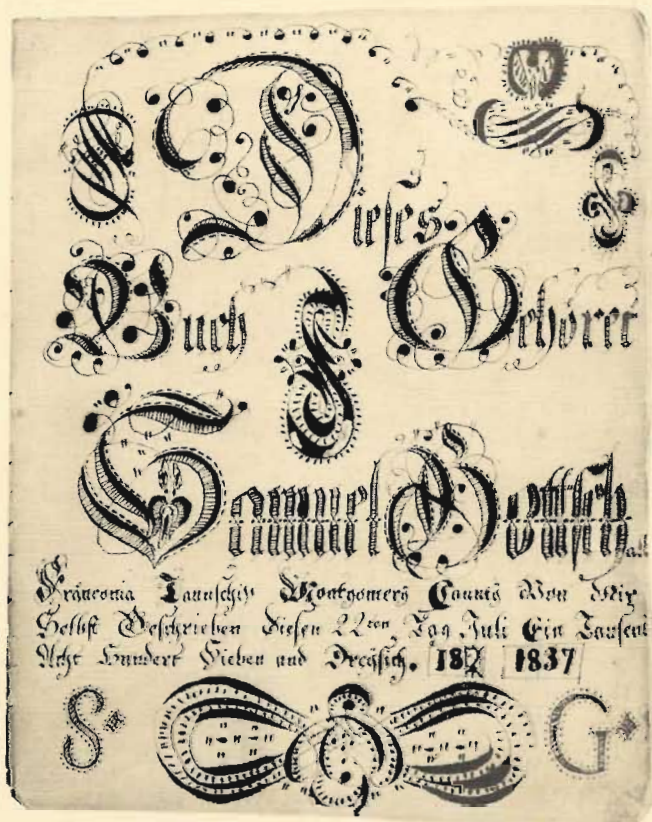 Dieses
Buch Gehöret
Samuel Gottschall
Franconia Taunschip Montgomery Caunty Von Mir
Selbst Geschrieben diesen 22ten Tag Juli Ein Tausent
Acht Hundert Sieben und Dreysich. 1837
S G